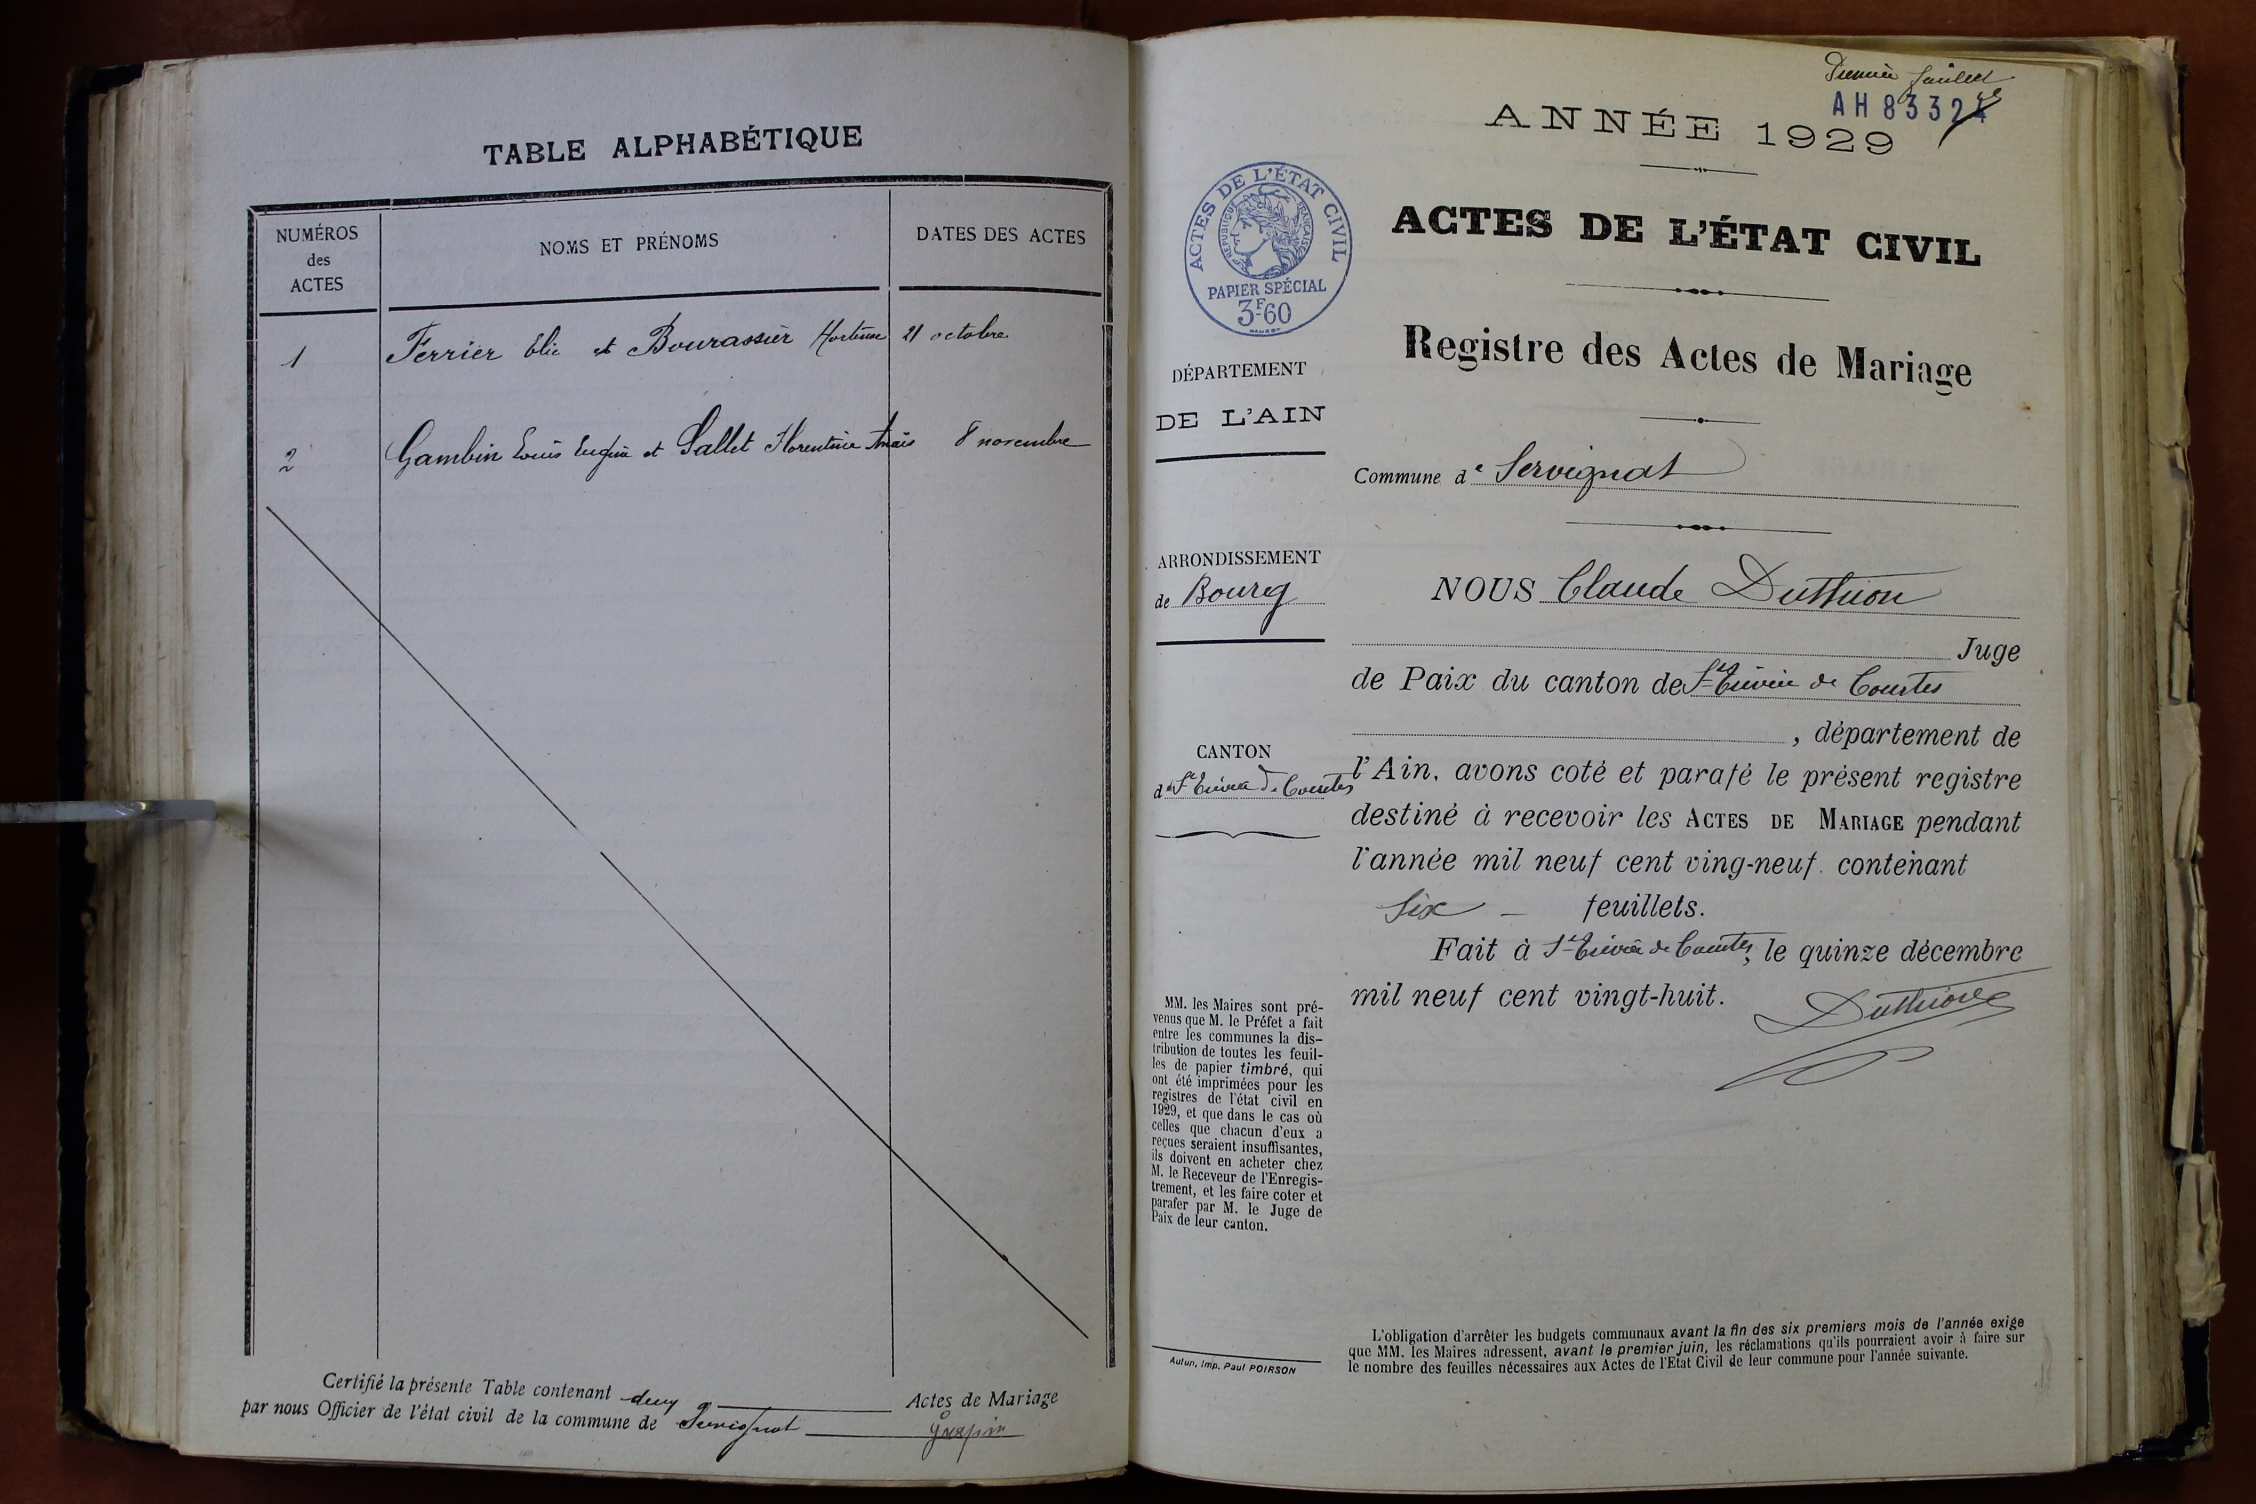 TABLE ALPHABÉTIQUE
NUMÉROS
des
ACTES
NOMS ET PRÉNOMS
DATES DES ACTES
1 Ferrier Elie et Bourassier Hortense 21 octobre
2 Gambin Louis Eugène et Sallet Florentine Anaïs 8 novembre
Certifié la présente Table contenant deux Actes de Mariage
par nous Officier de l'état civil de la commune de Servignat
Premier feuillet
AH 8332
ANNÉE 1929
ACTES DE L'ÉTAT CIVIL
RÉPUBLIQUE FRANÇAISE
PAPIER SPÉCIAL
3F60
ACTES DE L'ÉTAT CIVIL
Registre des Actes de Mariage
DÉPARTEMENT
DE L'AIN
Commune de Servignat
ARRONDISSEMENT
de Bourg
NOUS Claude Duthion
Juge
de Paix du canton de St Trivier de Courtes
, département de
CANTON
de St Trivier de Courtes
l'Ain, avons coté et parafé le présent registre
destiné à recevoir les ACTES DE MARIAGE pendant
l'année mil neuf cent ving-neuf. contenant
six feuillets.
Fait à St Trivier de Courtes, le quinze décembre
mil neuf cent vingt-huit.
Duthion
MM. les Maires sont pré-
venus que M. le Préfet a fait
entre les communes la dis-
tribution de toutes les feuil-
les de papier timbré, qui
ont été imprimées pour les
registres de l'état civil en
1929, et que dans le cas où
celles que chacun d'eux a
reçues seraient insuffisantes,
ils doivent en acheter chez
M. le Receveur de l'Enregis-
trement, et les faire coter et
parafer par M. le Juge de
Paix de leur canton.
Autun, Imp. Paul POIRSON
L'obligation d'arrêter les budgets communaux avant la fin des six premiers mois de l'année exige
que MM. les Maires adressent, avant le premier juin, les réclamations qu'ils pourraient avoir à faire sur
le nombre des feuilles nécessaires aux Actes de l'Etat Civil de leur commune pour l'année suivante.